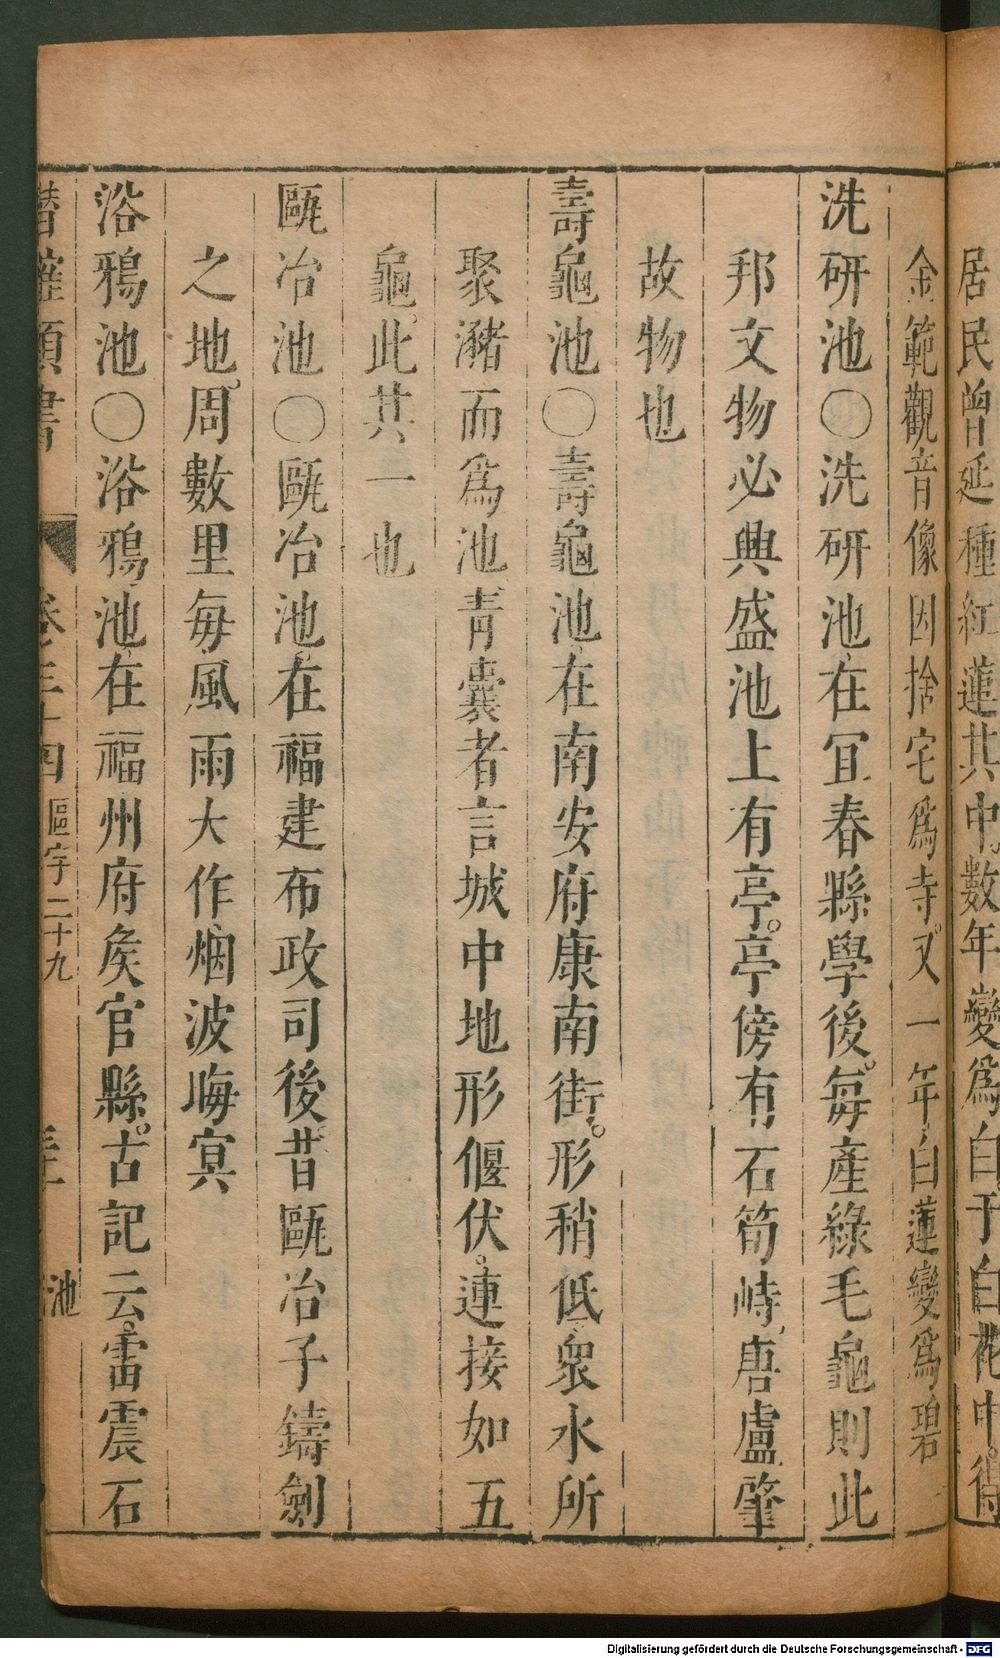 居民曾延種紅蓮其中數年變爲白于白花中得
金範觀音像因捨宅爲寺又一年白蓮變爲碧
洗研池○洗研池在冝春縣學後每產綠毛龜則此
邦文物必興盛池上有亭亭傍有石筍峙唐盧肇
故物也
壽龜池○壽龜池在南安府康南街形稍低衆水所
聚瀦而爲池青囊者言城中地形偃伏連接如五
龜此其一也
甌冶池○甌冶池在福建布政司後昔甌冶子鑄劍
之地周數里每風雨大作烟波晦冥
浴鴉池○浴鴉池在福州府矦官縣古記云雷震石
卷三十四 區字二十九 池
Digitalisierung gefördert durch die Deutsche Forschungsgemeinschaft - DFG